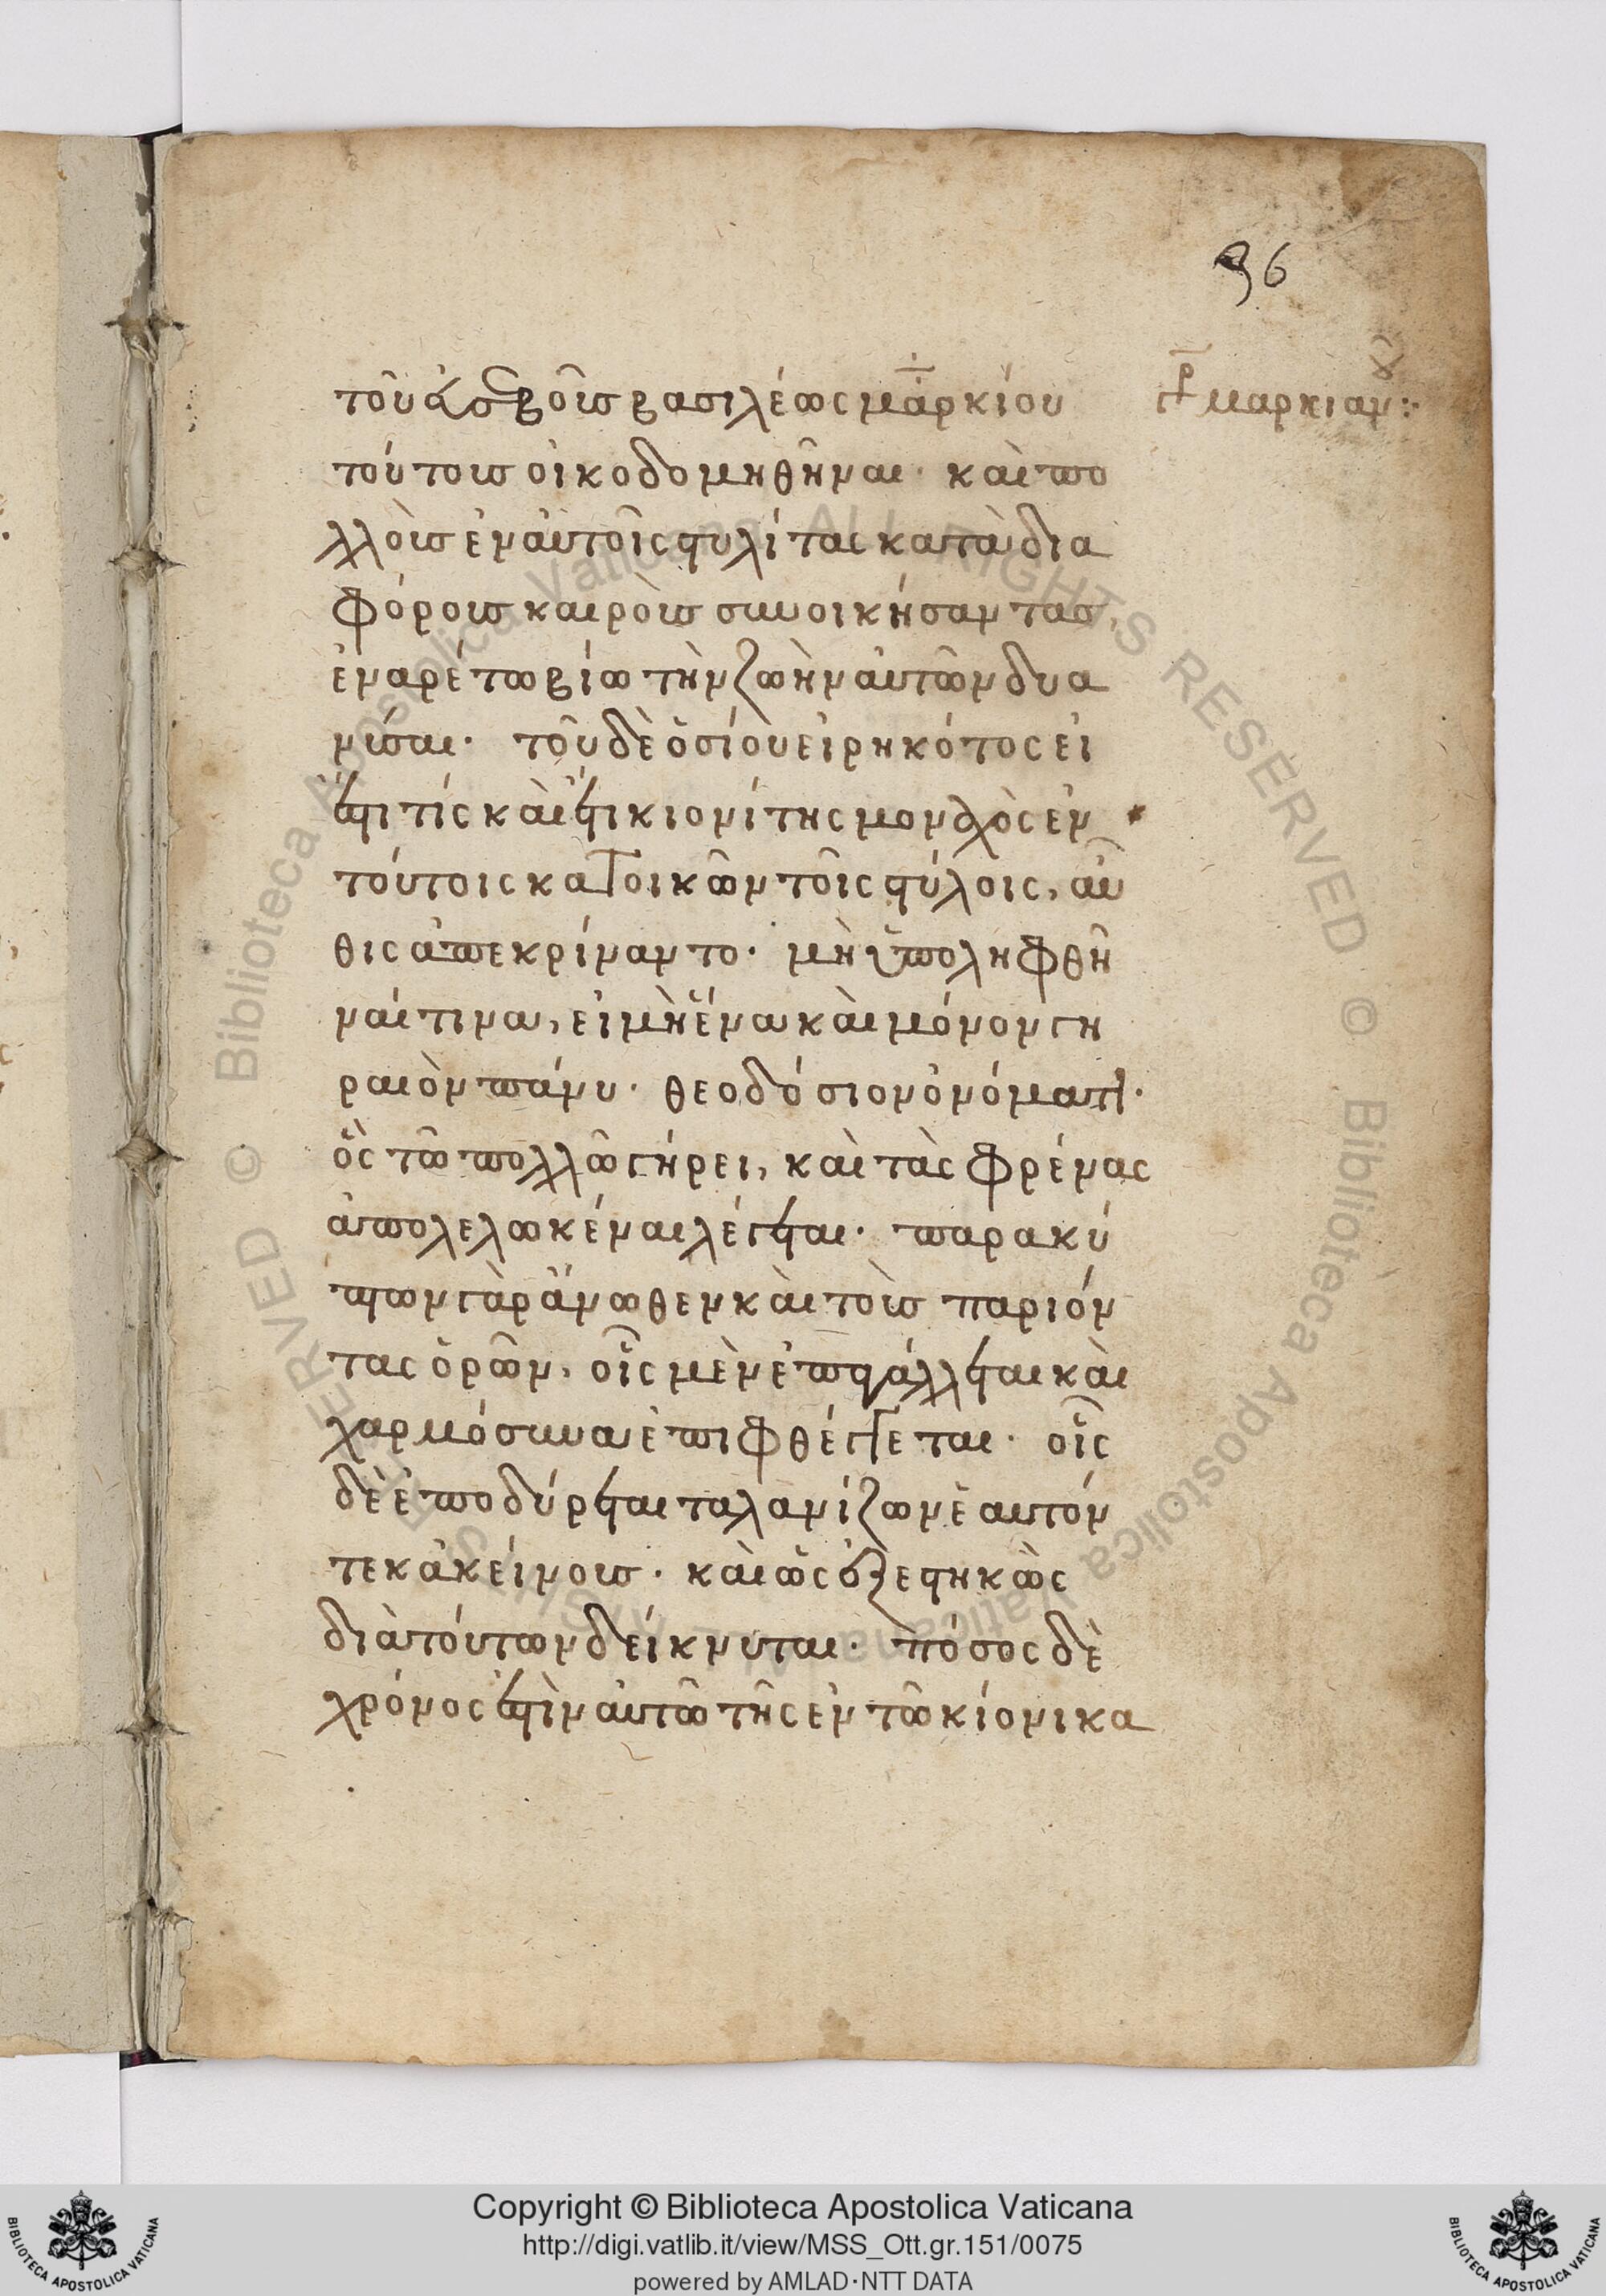 96
τοῦ εὐσεβοῦς βασιλέως μαρκίου
γρ μαρκιανοῦ:
τούτους οἰκοδομηθῆναι· καὶ πο
λλοὺς ἐν αὐτοῖς στυλίτας κατὰ δια
φόρους καιροὺς συνοικήσαντας,
ἐναρέτω βίω τὴν ζωὴν αὐτῶν δια
νύσαι· τοῦ δὲ ὁσίου εἰρηκότος εἰ
ἔστι τίς καὶ ἔτι κιονίτης μοναχὸς ἐν
τούτοις κατοικῶν τοῖς στύλοις, αὖ
θις ἀπεκρίναντο· μὴ ὑποληφθῆ
ναί τινα, εἰ μὴ ἕνα καὶ μόνον γη
ραιὸν πάνυ· θεοδόσιον ὀνόματι·
ὃς τῶ πολλῶ γήρει, καὶ τὰς φρένας
ἀπολελωκέναι λέγεται· παρακύ
πτων γὰρ ἄνωθεν καὶ τοὺς παριόν
τας ὁρῶν, οἷς μὲν ἐπιψάλλεται καὶ
χαρμόσυνα ἐπιφθέγγεται· οἷς
δὲ ἐποδύρεται ταλανίζων ἑαυτόν
τε κἀκείνους· καὶ ὡς ἐξεστηκὼς
διὰ τούτων δείκνυται· πόσος δὲ
χρόνος ἐστὶν αὐτῶ τῆς ἐν τῶ κίονι κα
Copyright © Biblioteca Apostolica Vaticana
http://digi.vatlib.it/view/MSS_Ott.gr.151/0075
powered by AMLAD·NTT DATA
BIBLIOTECA APOSTOLICA VATICANA
BIBLIOTECA APOSTOLICA VATICANA